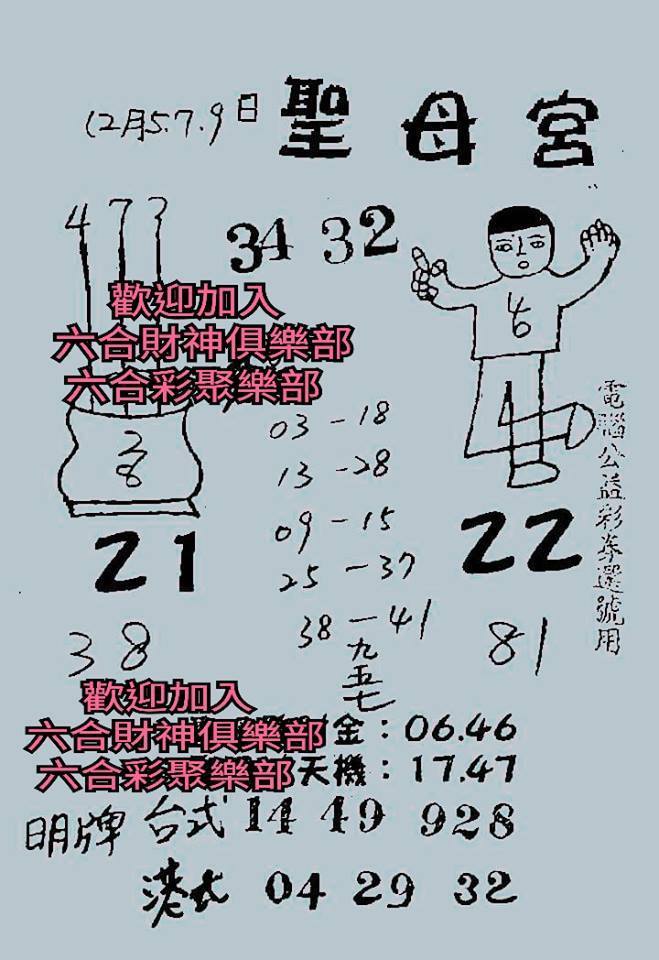 12月5.7.9日 聖母宮
4 7 3
34 32
歡迎加入
六合財神俱樂部
六合彩聚樂部
4
6
1
2
8
03-18
13-28
09-15
25-37
38-41
21
22
電腦公益彩券選號用
38
81
一九五七
歡迎加入
六合財神俱樂部
金：06.46
六合彩聚樂部
天機：17.47
明牌 台式 14 49 928
港式 04 29 32